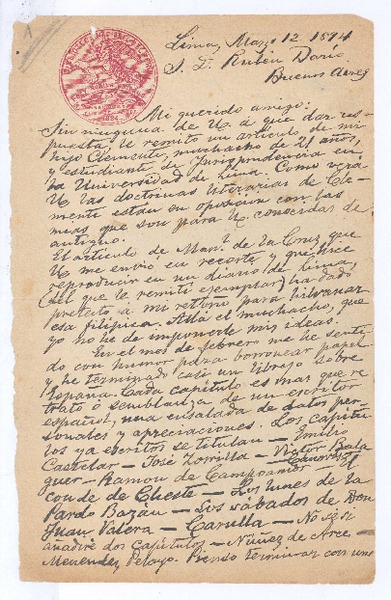 Lima, Marzo 12. 1894
S. D. Rubén Darío
Buenos Aires
Mi querido amigo:
Sin ninguna de Ud á que dar res
puesta, le remito un artículo de mi
hijo Clemente, muchacho de 21 años,
y estudiante de Jurisprudencia en
la Universidad de Lima. Como verá
U. las doctrinas literarias de Cle-
mente están en oposición con las
mias que son para U. conocidas de
antiguo.
El artículo de Man.l de la Cruz que
U. me envió en recorte y que hice
reproducir en un diario de Lima,
(del que le remití ejemplar) ha dado
pretexto á mi retoño para hilvanar
esa filípica. Allá el muchacho, que
yo no he de imponerle mis ideas.
En el mes de febrero me he senti
do con humor para borronear papel
y he terminado casi un librejo sobre
España. Cada capítulo es mas que re
trato ó semblanza de un escritor
español, una ensalada de datos per
sonales y apreciaciones. Los capítu
los ya escritos se titulan — Emilio
Castelar — José Zorrilla — Victor Bala
guer — Ramon de Campoamor — Cánovas — El
conde de Cheste — Los lunes de la
Pardo Bazán — Los sábados de Don
Juan Valera — Carulla — No sé si
añadiré dos capítulos — Núñez de Arce —
Menendez Pelayo. Pienso terminar con une